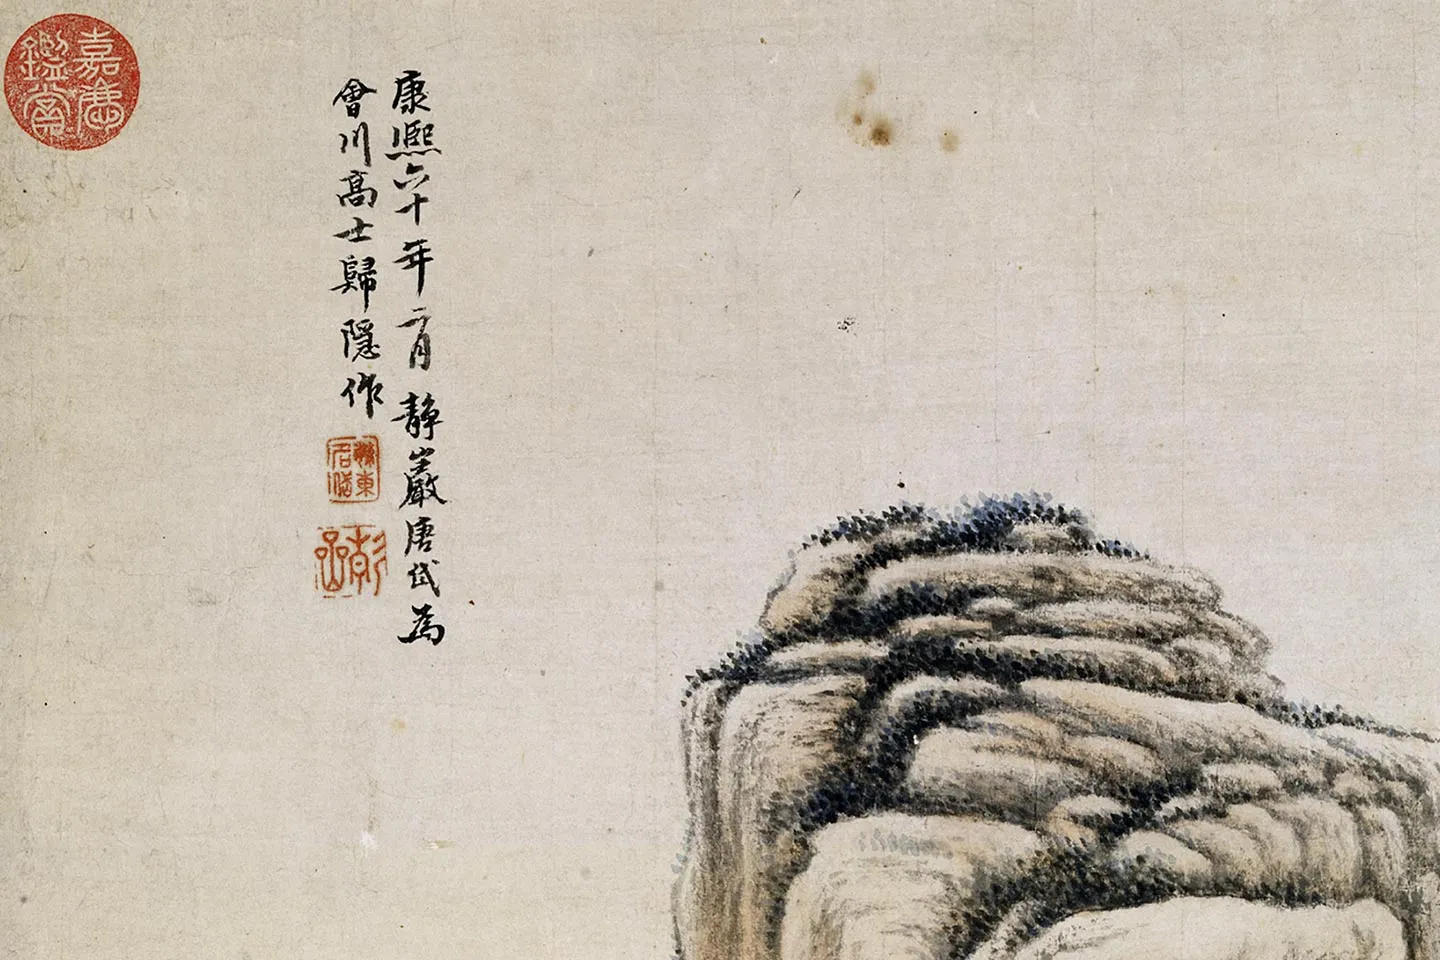 康熙六十年二月靜巖唐岱為
會川高士歸隱作
嘉慶
鑑賞